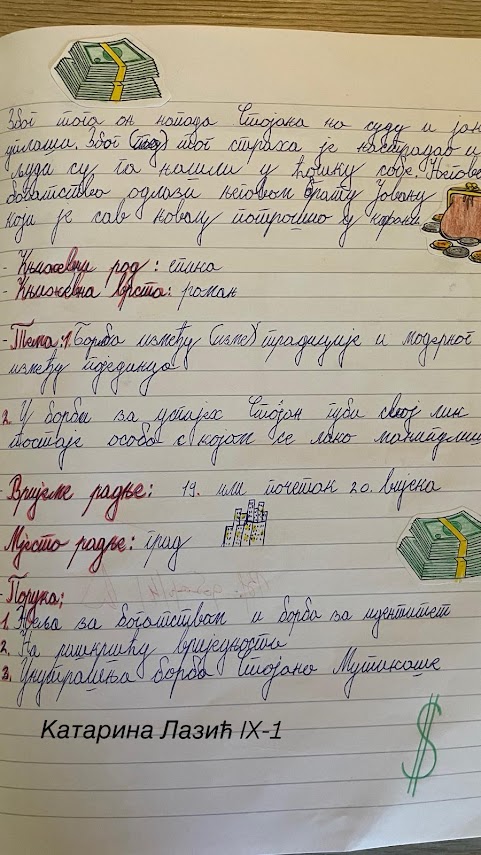 Због тога он напада Стојана на суду и јако
уплаши. Због (тод) тог страха је настрадао и
људи су га нашли у ћошку собе. Његово
богатство одлази његовом брату Јовану
који је сав новац потрошио у кафани
- Књижевни род: епика
- Књижевна врста: роман
- Тема: 1. Борба између (изме) традиције и модерног
између појединца
2. У борби за успјех Стојан губи свој лик
постаје особа с којом се лако манипулише
- Вријеме радње: 19. или почетак 20. вијека
Мјесто радње: град
- Порука;
1. Жеља за богатством и борба за идентитет
2. На раскршћу вриједности
3. Унутрашња борба Стојана Мутикаше
Катарина Лазић IX-1
$